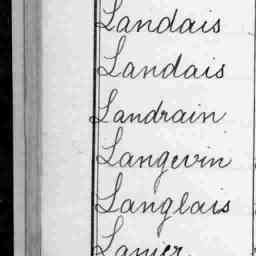 Landais
Landais
Landrain
Langevin
Langlais
Lanier